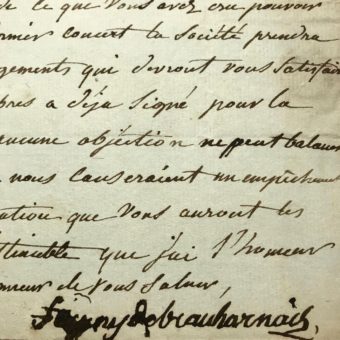 de ce que Vous avez cru pouvoir
rmier concert la Société prendra
gements qui devront vous satisfair
pres a déja signé pour la
aucune objection ne peut balancer
nous causeraient un empêchement
ation que Vous auront les
que j'ai l'honneur
nneur de vous saluer,
fanny de beauharnais